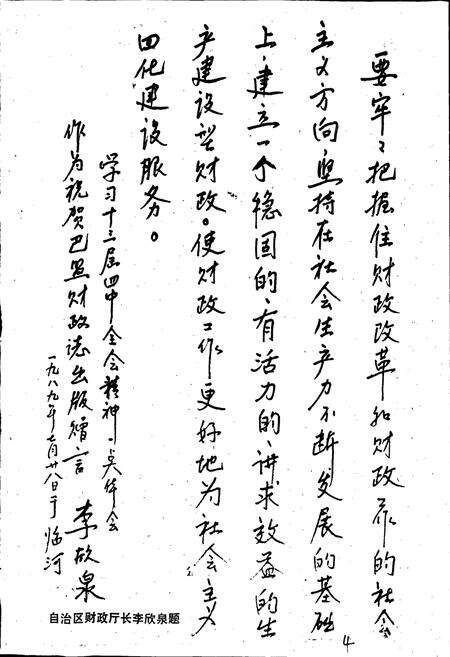 要牢々把握住财政改革和财政工作的社会
主义方向，坚持在社会生产力不断发展的基础
上，建立一个稳固的，有活力的，讲求效益的生
产建设型财政。使财政工作更好地为社会主义
四化建设服务。
学习十三届四中全会精神，点体会
作为祝贺巴盟财政志出版赠言
李欣泉
一九八九年七月廿八日于临河
自治区财政厅长李欣泉题
4